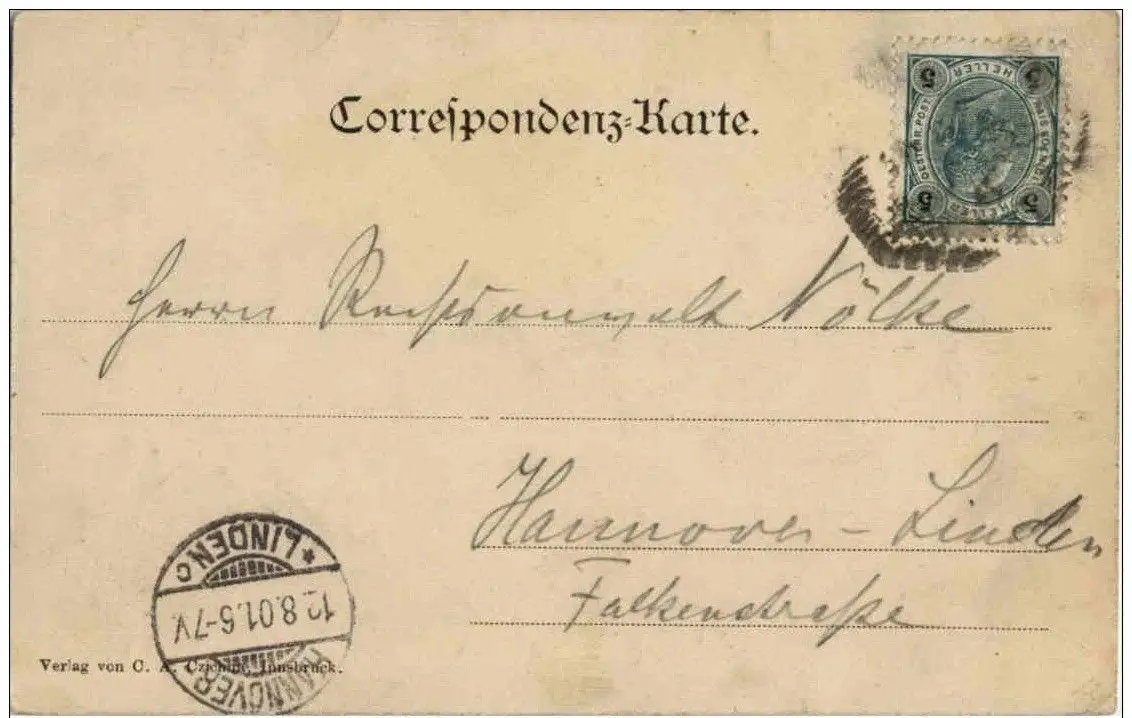 Correſpondenz-Karte.
5 HELLER 5
5 HELLER 5
Herrn Rechtsanwalt Nölke
Hannover – Linden
Falkenstraße
* LINDEN
8.01.6-7V.
HANNOVER
Verlag von C. A. Czichna, Innsbruck.